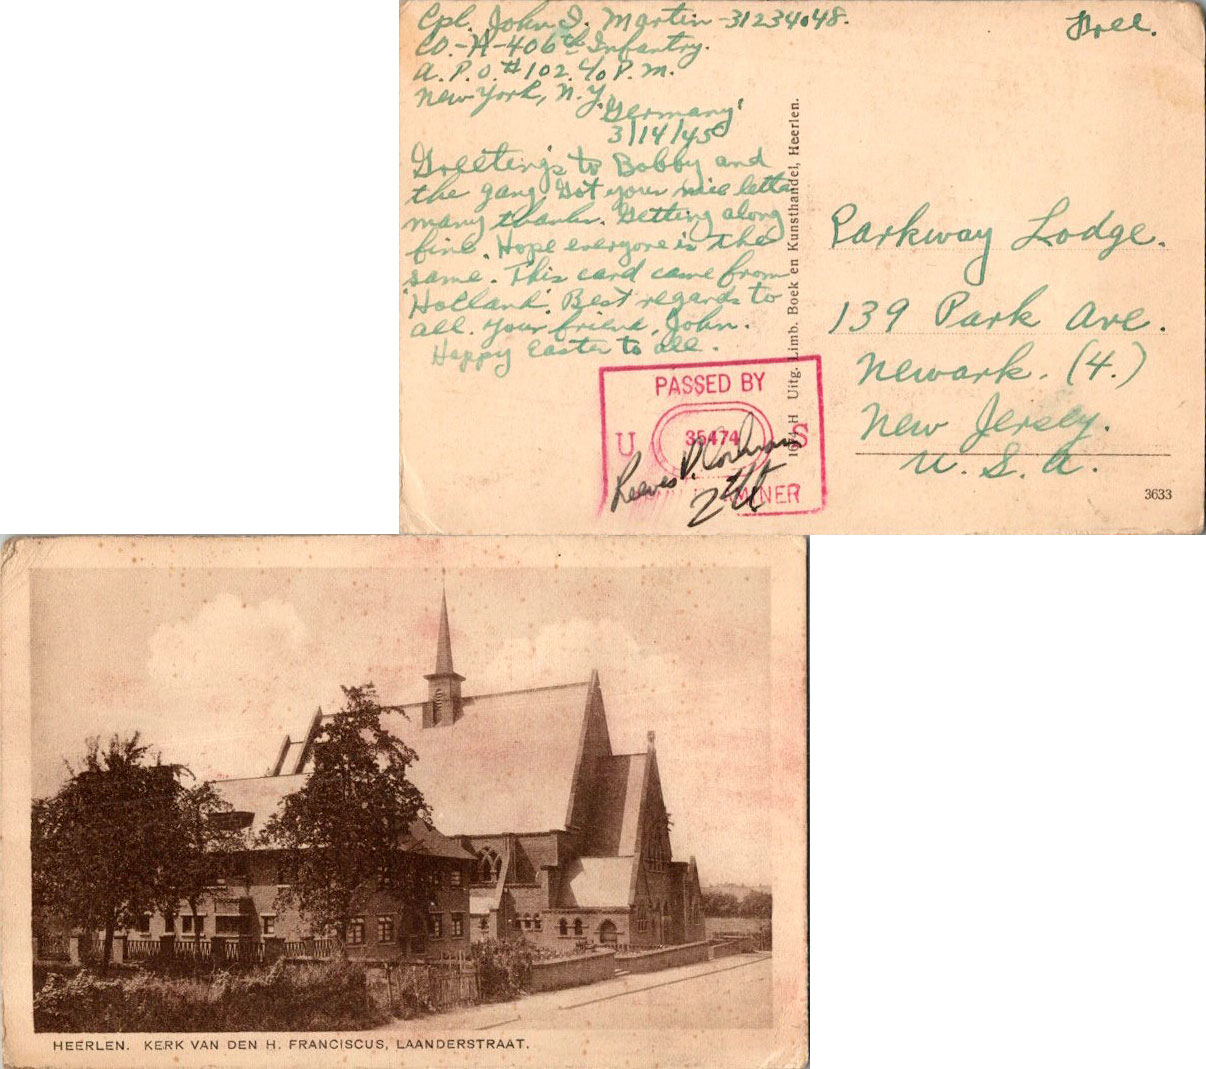 Cpl. John I. Martin - 31234048.
Co.-H-406th Infantry.
A.P.O. #102. c/o P.M.
New York, N.Y.
Free.
"Germany"
3/14/45
Greetings to Bobby and
the gang. Got your nice letter
many thanks. Getting along
fine. Hope everyone is the
same. This card came from
"Holland". Best regards to
all. Your friend, John.
Happy Easter to all.
Uitg. Limb. Boek en Kunsthandel, Heerlen.
Parkway Lodge.
139 Park Ave.
Newark. (4.)
New Jersey.
U. S. A.
PASSED BY
U 35474 S
Reeves D.
2nd Lt
3633
HEERLEN. KERK VAN DEN H. FRANCISCUS, LAANDERSTRAAT.